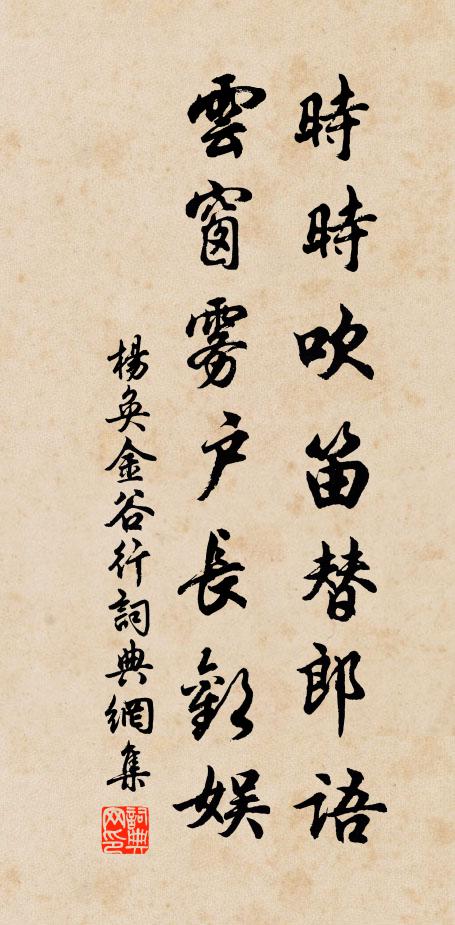 時時吹笛替郎語
雲窗雾户長歡娱
楊奐金谷行詞典網集
詞典网印